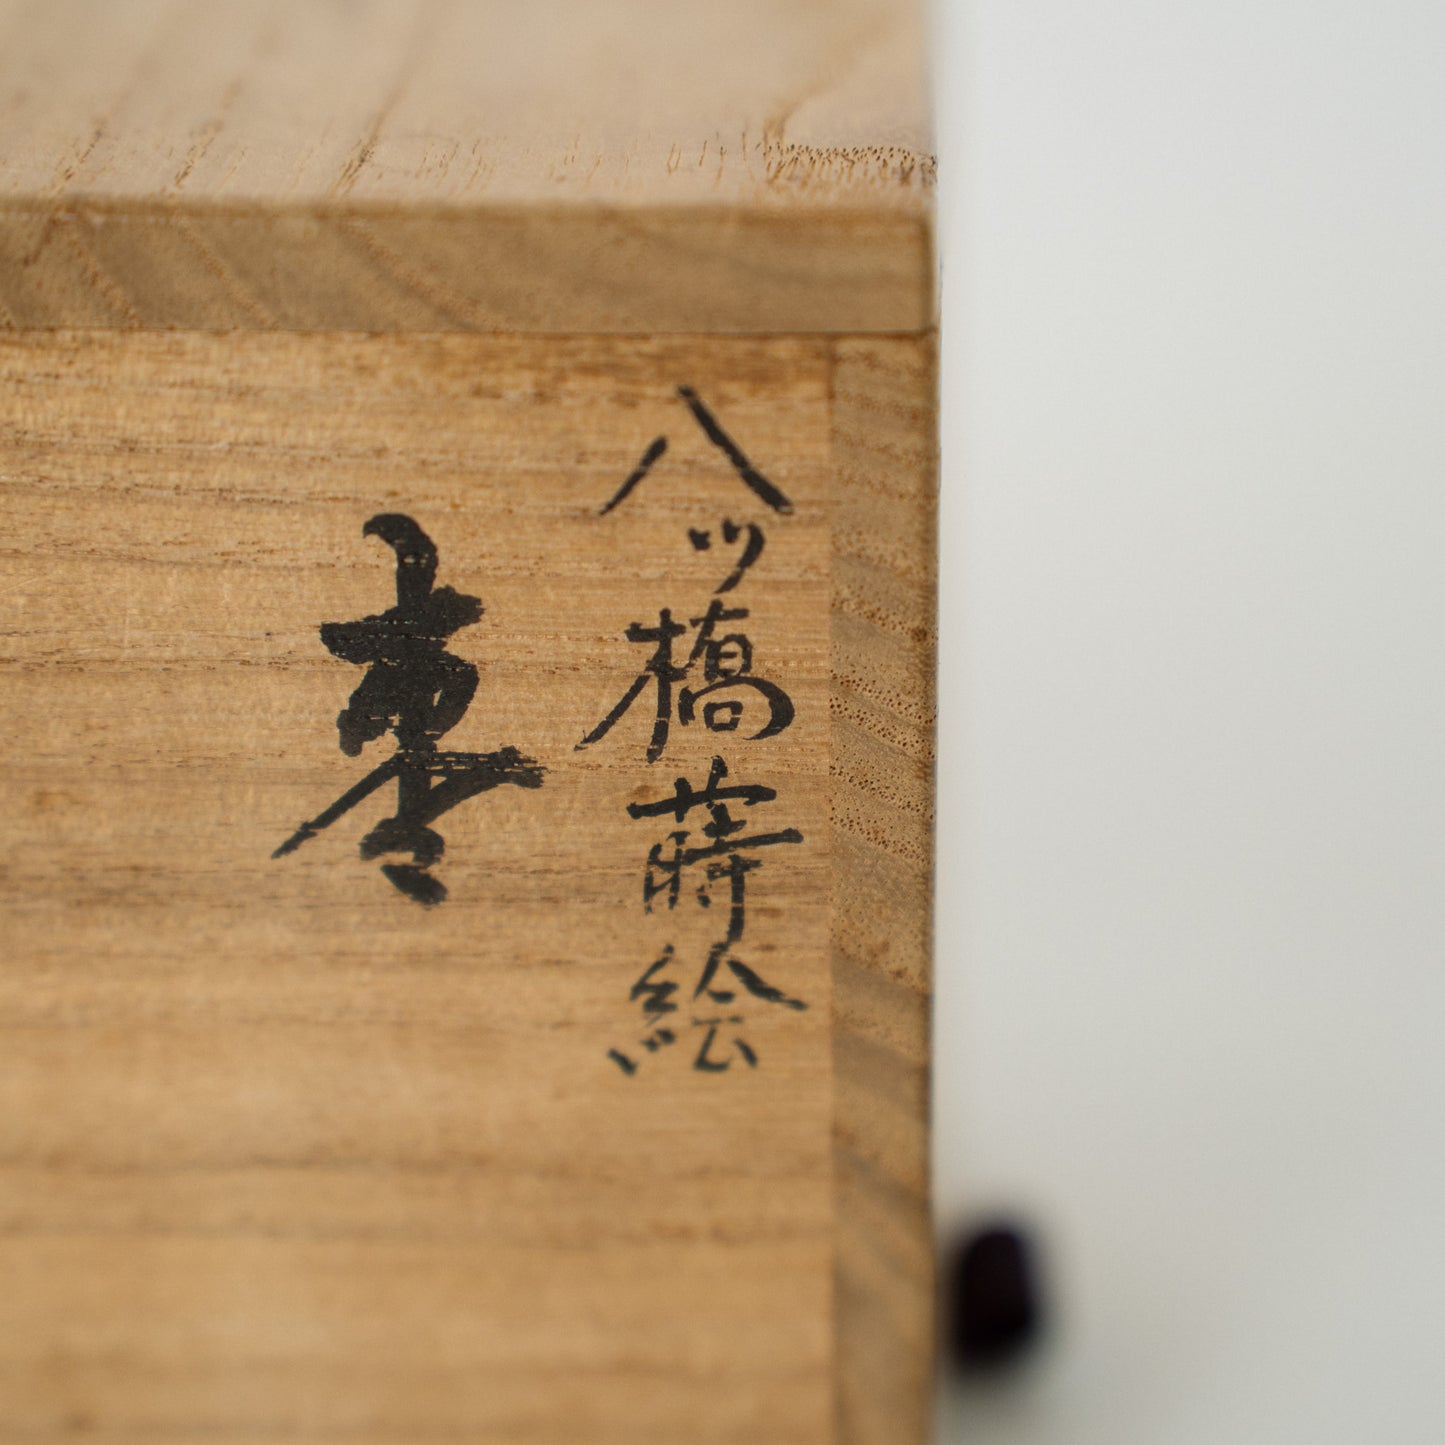 八ツ橋蒔絵
棗